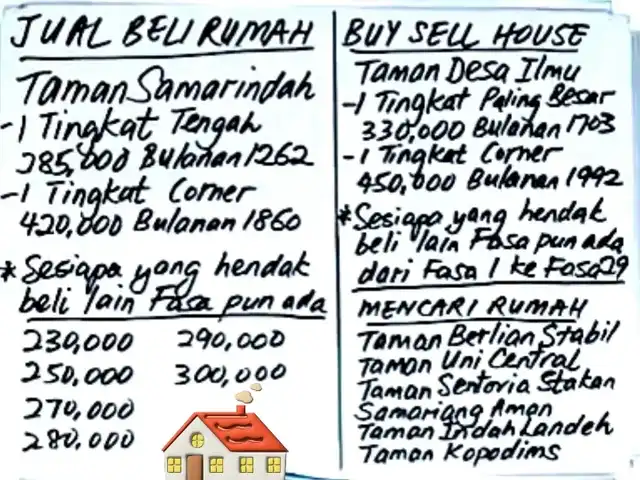 JUAL BELI RUMAH
Taman Samarindah
-1 Tingkat Tengah
285,000 Bulanan 1262
-1 Tingkat Corner
420,000 Bulanan 1860
*Sesiapa yang hendak
beli lain Fasa pun ada
230,000 290,000
250,000 300,000
270,000
280,000
BUY SELL HOUSE
Taman Desa Ilmu
-1 Tingkat Paling Besar
330,000 Bulanan 1703
-1 Tingkat Corner
450,000 Bulanan 1992
*Sesiapa yang hendak
beli lain Fasa pun ada
dari Fasa 1 ke Fasa 29
MENCARI RUMAH
Taman Berlian Stabil
Taman Uni Central
Taman Sentoria Stakan
Samariang Aman
Taman Indah Landeh
Taman Kopodims